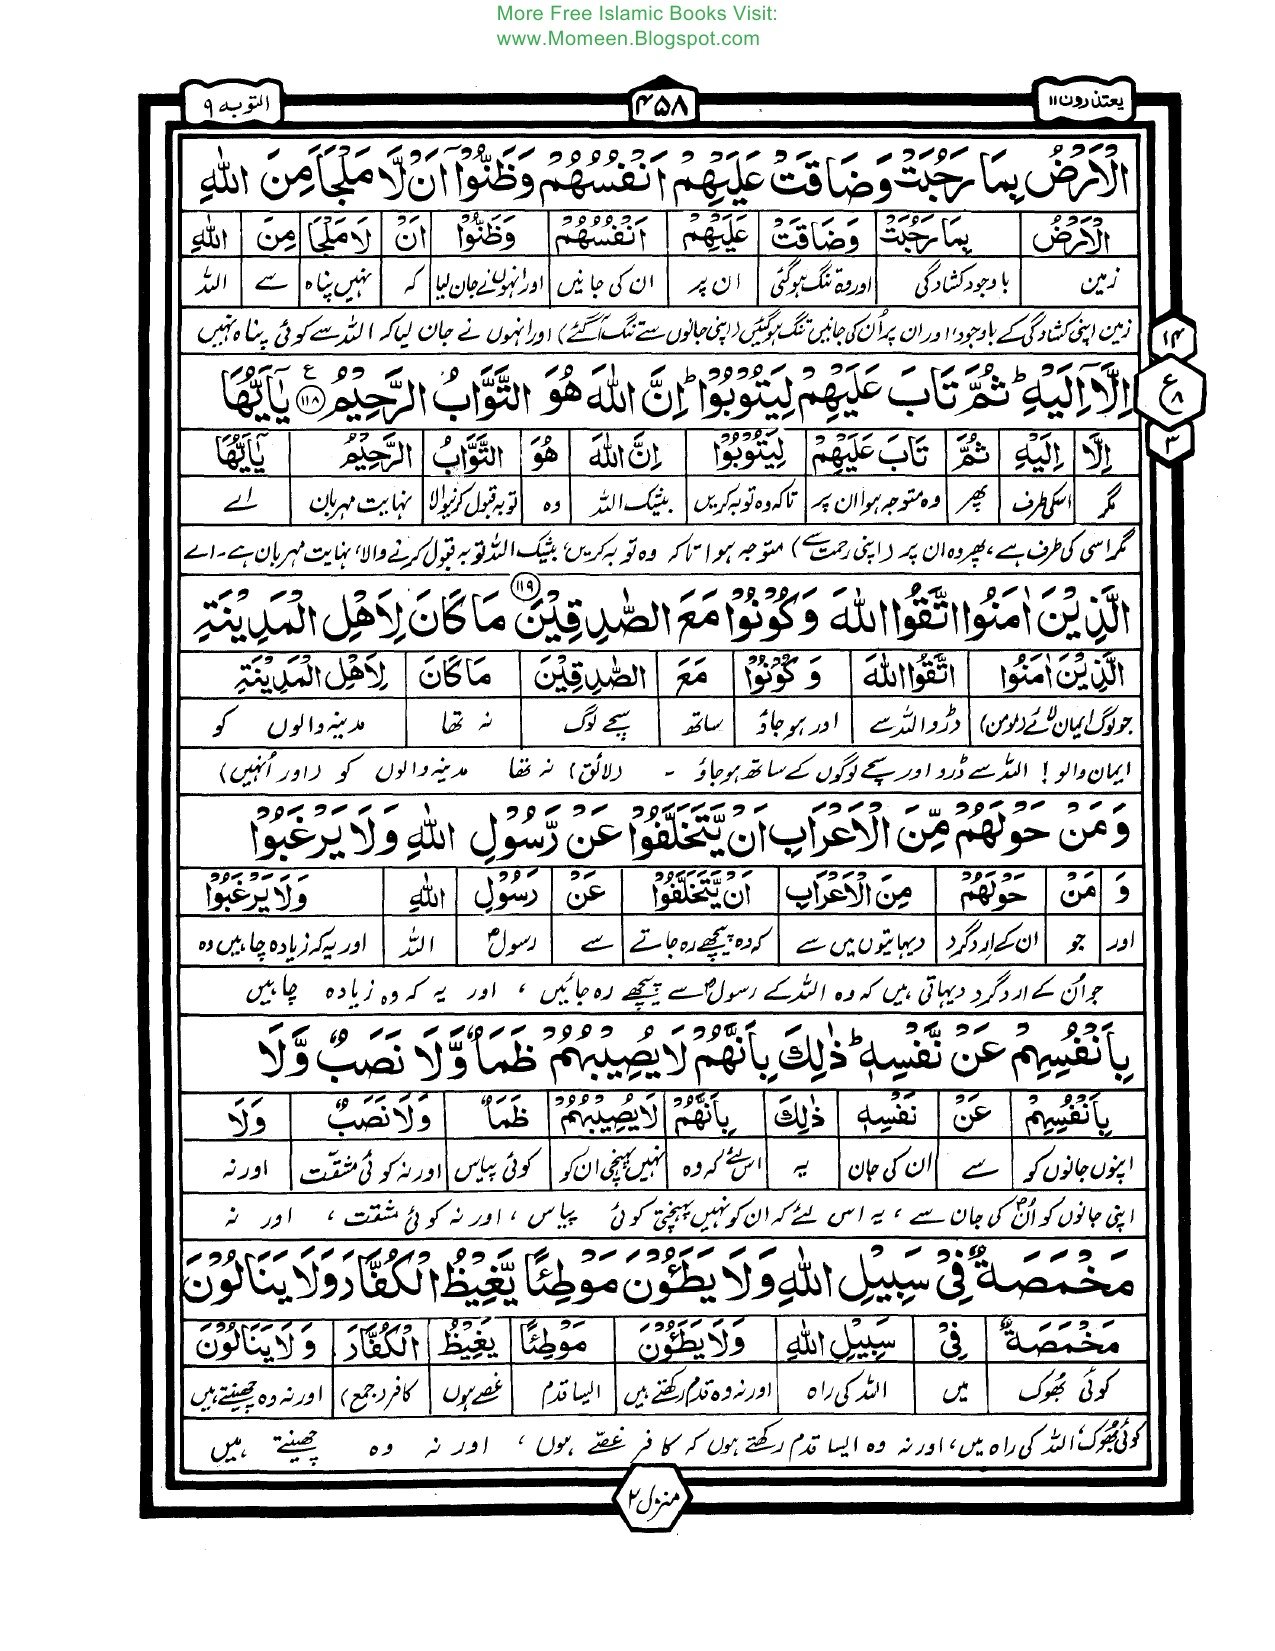 More Free Islamic Books Visit:
www.Momeen.Blogspot.com
يعتذرون ۱۱ ۴۵۸ التوبه ۹
الْاَرْضُ بِمَا رَحُبَتْ وَضَاقَتْ عَلَيْهِمْ اَنْفُسُهُمْ وَظَنُّوْۤا اَنْ لَّا مَلْجَاَ مِنَ اللّٰهِ
الْاَرْضُ بِمَا رَحُبَتْ وَضَاقَتْ عَلَيْهِمْ اَنْفُسُهُمْ وَظَنُّوْۤا اَنْ لَا مَلْجَاَ مِنَ اللّٰهِ
زمین باوجود کشادگی اور وہ تنگ ہوگئی ان پر ان کی جانیں اور انہوں نے جان لیا کہ نہیں پناہ سے اللہ
زمین اپنی کشادگی کے باوجود، اور ان پر اُن کی جانیں تنگ ہوگئیں (اپنی جانوں سے تنگ آگئے) اور انہوں نے جان لیا کہ اللہ سے کوئی پناہ نہیں
۱۴
اِلَّاۤ اِلَيْهِ ؕ ثُمَّ تَابَ عَلَيْهِمْ لِيَتُوْبُوْا ؕ اِنَّ اللّٰهَ هُوَ التَّوَّابُ الرَّحِيْمُ ﴿۱۱۸﴾ يٰۤاَيُّهَا
ع
۸
۳
اِلَّا اِلَيْهِ ثُمَّ تَابَ عَلَيْهِمْ لِيَتُوْبُوْا اِنَّ اللّٰهَ هُوَ التَّوَّابُ الرَّحِيْمُ يٰۤاَيُّهَا
مگر اسکی طرف پھر وہ متوجہ ہوا ان پر تاکہ وہ توبہ کریں بیشک اللہ وہ توبہ قبول کرنیوالا نہایت مہربان اے
مگر اسی کی طرف ہے، پھر وہ ان پر (اپنی رحمت سے) متوجہ ہوا تاکہ وہ توبہ کریں، بیشک اللہ توبہ قبول کرنے والا، نہایت مہربان ہے۔ اے
الَّذِيْنَ اٰمَنُوا اتَّقُوا اللّٰهَ وَكُوْنُوْا مَعَ الصّٰدِقِيْنَ ﴿۱۱۹﴾ مَا كَانَ لِاَهْلِ الْمَدِيْنَةِ
الَّذِيْنَ اٰمَنُوا اتَّقُوا اللّٰهَ وَ كُوْنُوْا مَعَ الصّٰدِقِيْنَ مَا كَانَ لِاَهْلِ الْمَدِيْنَةِ
جو لوگ ایمان لائے (مومن) ڈرو اللہ سے اور ہوجاؤ ساتھ سچے لوگ نہ تھا مدینہ والوں کو
ایمان والو! اللہ سے ڈرو اور سچے لوگوں کے ساتھ ہوجاؤ۔ (لائق) نہ تھا مدینہ والوں کو (اور اُنہیں)
وَ مَنْ حَوْلَهُمْ مِّنَ الْاَعْرَابِ اَنْ يَّتَخَلَّفُوْا عَنْ رَّسُوْلِ اللّٰهِ وَلَا يَرْغَبُوْا
وَ مَنْ حَوْلَهُمْ مِنَ الْاَعْرَابِ اَنْ يَّتَخَلَّفُوْا عَنْ رَسُوْلِ اللّٰهِ وَلَا يَرْغَبُوْا
اور جو ان کے اردگرد دیہاتیوں میں سے کہ وہ پیچھے رہ جاتے سے رسولؐ اللہ اور یہ کہ زیادہ چاہیں وہ
جو اُن کے اردگرد دیہاتی ہیں کہ وہ اللہ کے رسولؐ سے پیچھے رہ جائیں، اور یہ کہ وہ زیادہ چاہیں
بِاَنْفُسِهِمْ عَنْ نَّفْسِهٖ ؕ ذٰلِكَ بِاَنَّهُمْ لَا يُصِيْبُهُمْ ظَمَاٌ وَّلَا نَصَبٌ وَّلَا
بِاَنْفُسِهِمْ عَنْ نَفْسِهٖ ذٰلِكَ بِاَنَّهُمْ لَا يُصِيْبُهُمْ ظَمَاٌ وَلَا نَصَبٌ وَلَا
اپنوں جانوں کو سے ان کی جان یہ اس لئے کہ وہ نہیں پہنچی ان کو کوئی پیاس اور نہ کوئی مشقت اور نہ
اپنی جانوں کو اُنؐ کی جان سے، یہ اس لئے کہ ان کو نہیں پہنچتی کوئی پیاس، اور نہ کوئی مشقت، اور نہ
مَخْمَصَةٌ فِيْ سَبِيْلِ اللّٰهِ وَلَا يَطَئُوْنَ مَوْطِئًا يَّغِيْظُ الْكُفَّارَ وَلَا يَنَالُوْنَ
مَخْمَصَةٌ فِيْ سَبِيْلِ اللّٰهِ وَلَا يَطَئُوْنَ مَوْطِئًا يَغِيْظُ الْكُفَّارَ وَلَا يَنَالُوْنَ
کوئی بھوک میں اللہ کی راہ اور نہ وہ قدم رکھتے ہیں ایسا قدم غصے ہوں کافر (جمع) اور نہ وہ چھینتے ہیں
کوئی بھوک، اللہ کی راہ میں، اور نہ وہ ایسا قدم رکھتے ہوں کہ کافر غصّے ہوں، اور نہ وہ چھینتے ہیں
منزل ۲